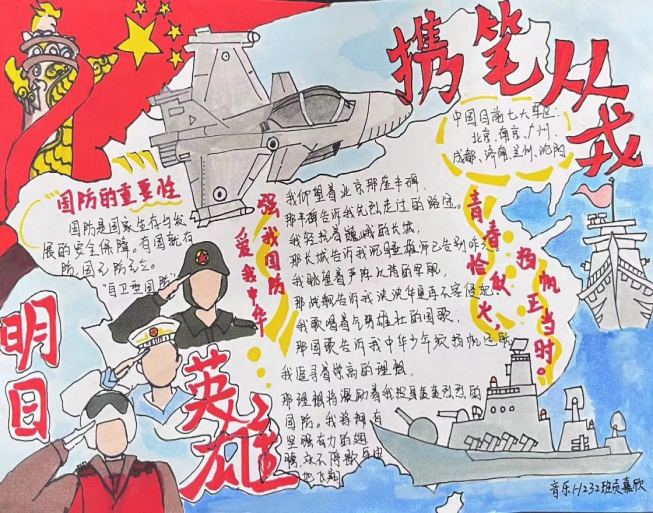 携笔从戎
中国目前七大军区:
北京、南京、广州、
成都、济南、兰州、沈阳
国防的重要性
国防是国家生存与发
展的安全保障。有国就有
防,国无防不立。
"自卫型国防"
强我国防
爱我中华
我仰望着北京那座丰碑,
那丰碑告诉我先烈走过的路途。
我轻抚着巍峨的长城,
那长城告诉我沉睡雄狮已告别昨
我眺望着严阵以待的军舰,
那战舰告诉我泱泱华夏再不容侵犯
我歌唱着气势雄壮的国歌,
那国歌告诉我中华少年须扬帆远
我追寻着崇高的理想,
那理想将激励着我投身轰轰烈烈的
国防。我将拥有
坚强有力的翅
膀,永不停歇
青春恰似火,
扬帆正当时。
明日
英雄
音乐H232班